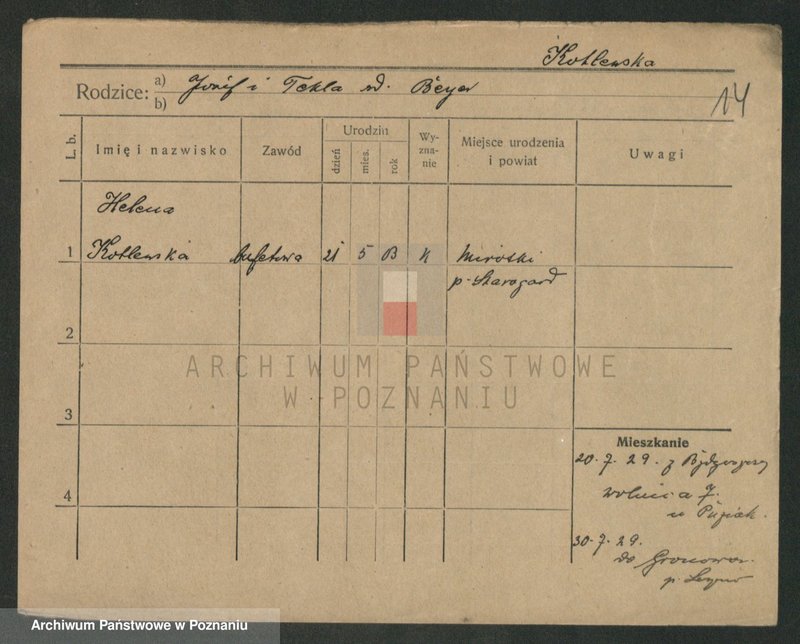 Kotlewska
Rodzice: a) Józef i Tekla Beyer
b)
14
L. b.
Imię i nazwisko
Zawód
Urodzin
dzień
mies.
rok
Wy-
zna-
nie
Miejsce urodzenia
i powiat
Uwagi
Helena
1 Kotlewska bufetowa 21 5 K
p. Starogard
2
3
4
ARCHIWUM PAŃSTWOWE
W POZNANIU
Mieszkanie
20.7.29. z Bydgoszczy
30.7.29.
do
Archiwum Państwowe w Poznaniu